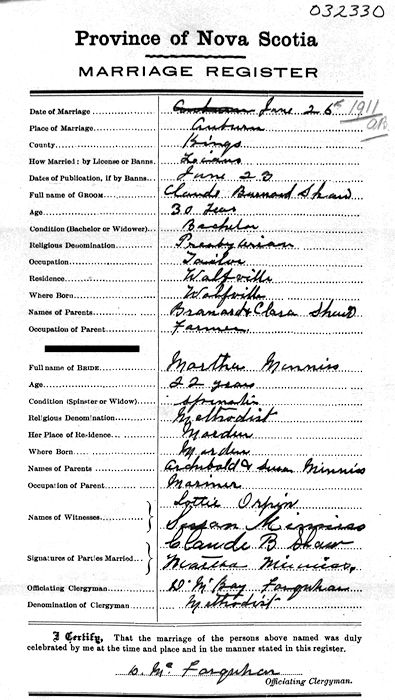 032330
Province of Nova Scotia
MARRIAGE REGISTER
Date of Marriage June 26th 1911
Place of Marriage Auburn
County Kings
How Married: by License or Banns.
Dates of Publication, if by Banns. June 23
Full name of GROOM Claude Burnard Shaw
Age 30 Years
Condition (Bachelor or Widower) Bachelor
Religious Denomination Presbyterian
Occupation
Residence Wolfville
Where Born Wolfville
Names of Parents & Clara Shaw
Occupation of Parent Farmer
Full name of BRIDE Martha Minniss
Age 22 years
Condition (Spinster or Widow) Spinster
Religious Denomination Methodist
Her Place of Residence Morden
Where Born Morden
Names of Parents Archibald & Susan Minniss
Occupation of Parent Mariner
Names of Witnesses Lottie Orpin
Susan Minniss
Signatures of Parties Married Claude B Shaw
Martha Minniss.
Officiating Clergyman Farquhar
Denomination of Clergyman Methodist
I Certify, That the marriage of the persons above named was duly
celebrated by me at the time and place and in the manner stated in this register.
D. Mc Farquhar
Officiating Clergyman.